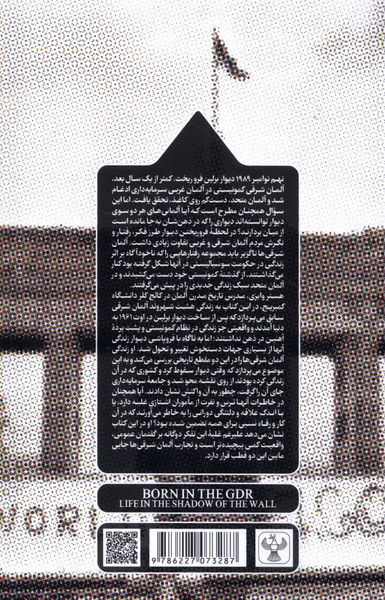 نهم نوامبر ۱۹۸۹ دیوار برلین فرو ریخت. کمتر از یک سال بعد،
آلمان شرقی کمونیستی در آلمان غربی سرمایه‌داری ادغام
شد و آلمان متحد، دست‌کم روی کاغذ، تحقق یافت. اما این
سؤال همچنان مطرح است که آیا آلمانی‌های هر دو سوی
دیوار توانسته‌اند دیواری را که در ذهن‌شان به جا مانده است
از میان بردارند؟ در لحظهٔ فروریختن دیوار طرز فکر، رفتار و
نگرش مردم آلمان شرقی و غربی تفاوت زیادی داشت. آلمان
شرقی‌ها ناگزیر باید مجموعه رفتارهایی را که ناخودآگاه بر اثر
زندگی در حکومت سوسیالیستی در آنها شکل گرفته بود کنار
می‌گذاشتند. از گذشتهٔ کمونیستی خود دست می‌کشیدند و در
آلمان متحد سبک زندگی جدیدی را در پیش می‌گرفتند.
هستر وایزی، مدرس تاریخ مدرن آلمان در کالج کفر دانشگاه
کمبریج، در این کتاب به زندگی هشت شهروند آلمان شرقی
سابق می‌پردازد که پس از ساخت دیوار برلین در اوت ۱۹۶۱ به
دنیا آمدند و واقعیتی جز زندگی در نظام کمونیستی و پشت پردهٔ
آهنین در ذهن نداشتند؛ اما به ناگاه با فروپاشی دیوار زندگی
آن‌ها از بسیاری جهات دستخوش تغییر و تحول شد. او زندگی
آلمان شرقی‌ها را در این دو مقطع تاریخی بررسی می‌کند و به این
موضوع می‌پردازد که وقتی دیوار سقوط کرد و کشوری که در آن
زندگی کرده بودند از روی نقشه محو شد و جامعهٔ سرمایه‌داری
جای آن را گرفت، چطور به آن واکنش نشان دادند. آیا همچنان
در خاطرات آنها ترس و نفرت از مأموران اشتازی غلبه دارد، یا
با اندک علاقه و دلتنگی دورانی را به خاطر می‌آورند که در آن
کار و رفاه نسبی برای همه تضمین شده بود؟ او در این کتاب
نشان می‌دهد علیرغم غلبهٔ این تفکر دوگانه بر گفتمان عمومی،
واقعیت کمی پیچیده‌تر است و تجارب آلمان شرقی‌ها جایی
مابین این دو قطب قرار دارد.
BORN IN THE GDR
LIFE IN THE SHADOW OF THE WALL
9 786227 073287